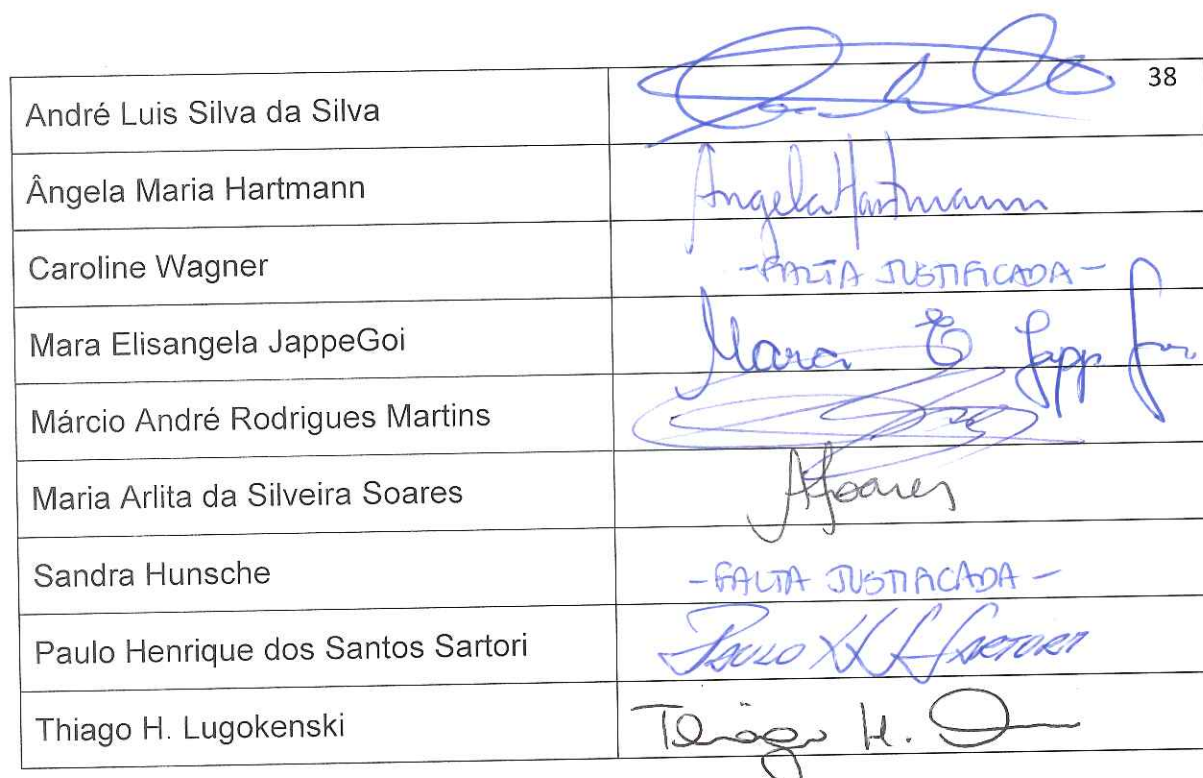 38
André Luis Silva da Silva
Ângela Maria Hartmann Angela Hartmann
Caroline Wagner -FALTA JUSTIFICADA-
Mara Elisangela JappeGoi Mara E Japp
Márcio André Rodrigues Martins
Maria Arlita da Silveira Soares ASoares
Sandra Hunsche -FALTA JUSTIFICADA-
Paulo Henrique dos Santos Sartori PAULO H S SARTORI
Thiago H. Lugokenski Thiago H.